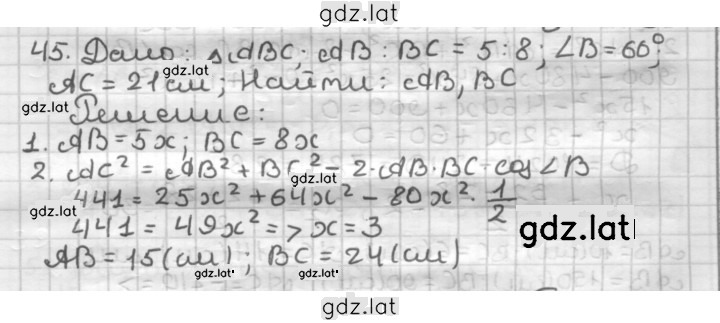 gdz.lat
45. Дано: △ABC; AB : BC = 5 : 8; ∠B = 60°;
gdz.lat
AC = 21 см; Найти: AB, BC
gdz.lat
Решение:
1. AB = 5x; BC = 8x
2. AC² = AB² + BC² - 2·AB·BC·cos∠B
gdz.lat
441 = 25x² + 64x² - 80x² · 1/2
gdz.lat
441 = 49x² => x = 3
gdz.lat
AB = 15 (см); BC = 24 (см)
gdz.lat gdz.lat
gdz.lat